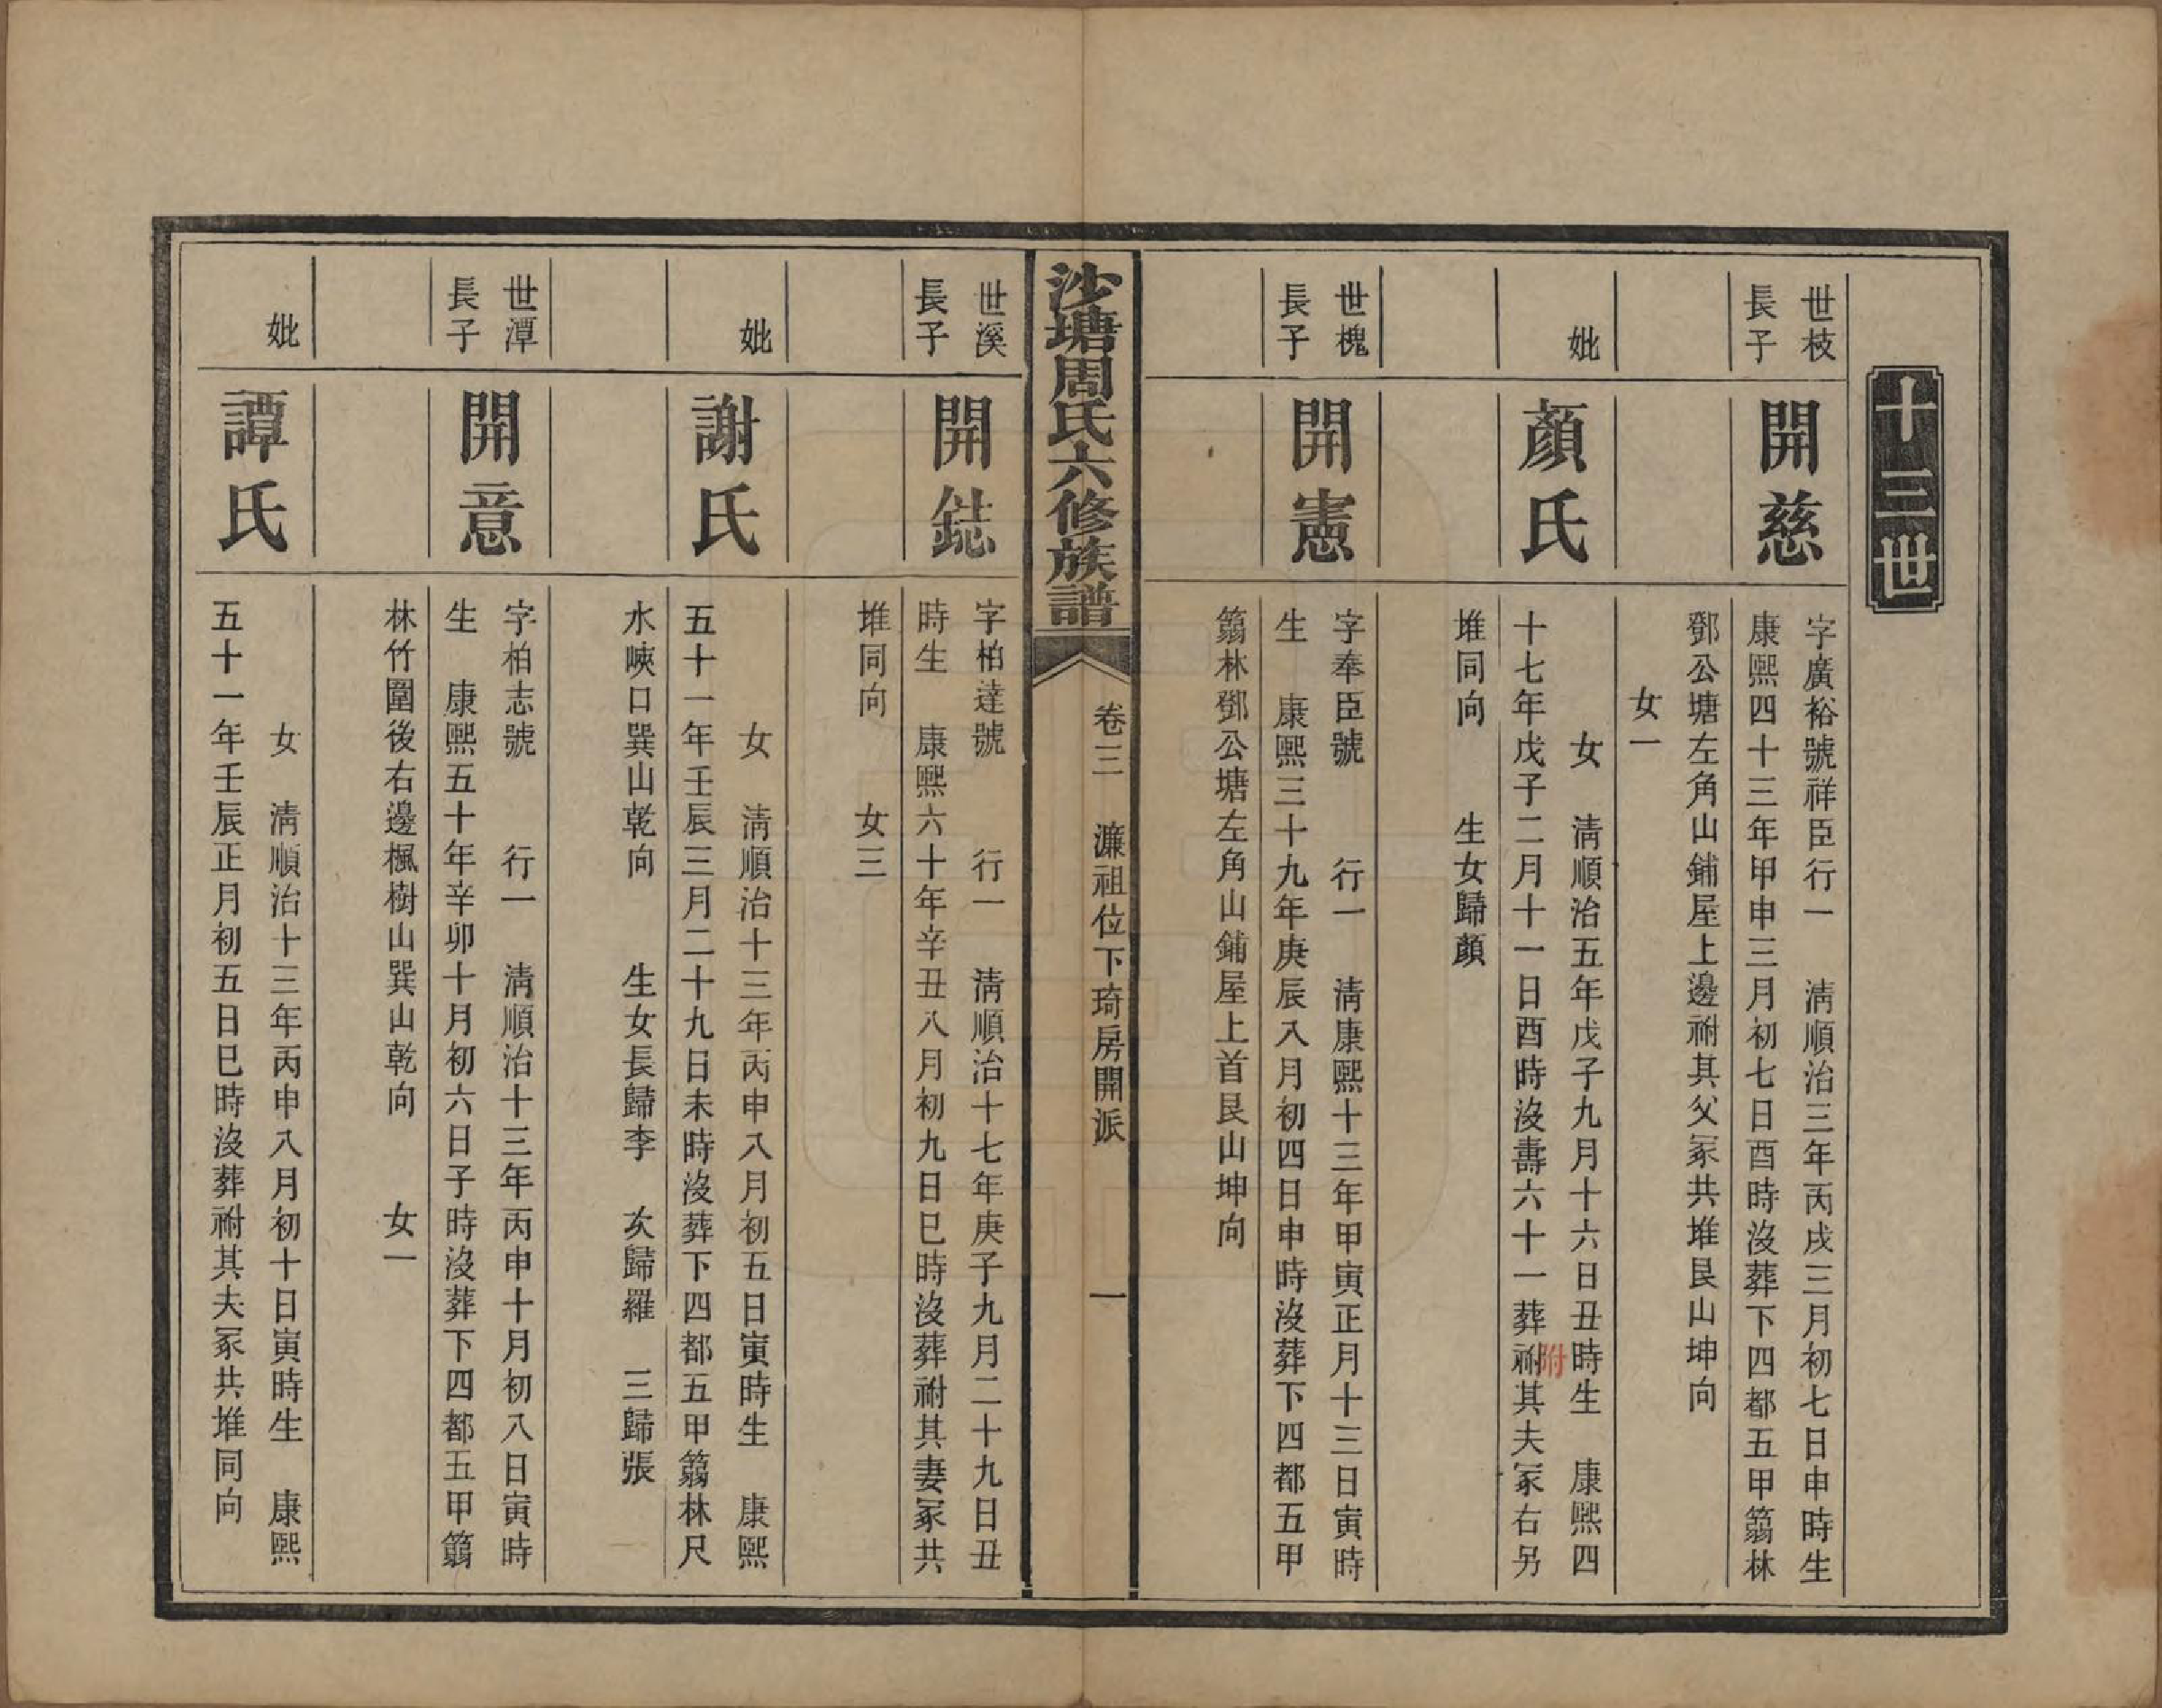 十三世
世枝
長子
開慈
字廣裕號祥臣行一　清順治三年丙戌三月初七日申時生
康熙四十三年甲申三月初七日酉時沒葬下四都五甲篛林
鄧公塘左角山鋪屋上邊祔其父冢共堆艮山坤向
女一
妣
顏氏
女　清順治五年戊子九月十六日丑時生　康熙四
十七年戊子二月十一日酉時沒壽六十一葬祔其夫冢右另
附
堆同向　　生女歸顏
世槐
長子
開憲
字奉臣號　　行一　清康熙十三年甲寅正月十三日寅時
生　康熙三十九年庚辰八月初四日申時沒葬下四都五甲
篛林鄧公塘左角山鋪屋上首艮山坤向
沙塘周氏六修族譜
卷三　濂祖位下琦房開派
一
世溪
長子
開鋕
字柏達號　　行一　清順治十七年庚子九月二十九日丑
時生　康熙六十年辛丑八月初九日巳時沒葬祔其妻冢共
堆同向　　女三
妣
謝氏
女　清順治十三年丙申八月初五日寅時生　康熙
五十一年壬辰三月二十九日未時沒葬下四都五甲篛林尺
水峽口巽山乾向　　生女長歸李　次歸羅　三歸張
世潭
長子
開意
字柏志號　　行一　清順治十三年丙申十月初八日寅時
生　康熙五十年辛卯十月初六日子時沒葬下四都五甲篛
林竹圍後右邊楓樹山巽山乾向　　女一
妣
譚氏
女　清順治十三年丙申八月初十日寅時生　康熙
五十一年壬辰正月初五日巳時沒葬祔其夫冢共堆同向